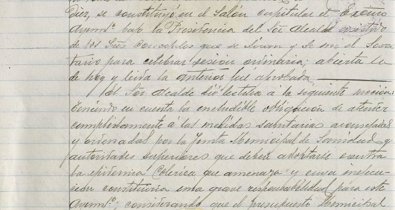 diez, se constituyó en el Salón capitular el Excmo
Aymto. bajo la Presidencia del Sor Alcalde
de los Sres Concejales que se y de mi el Secre
tario para celebrar sesión ordinaria; abierta la
de hoy y leida la anterior fué aprobada.
El Sor Alcalde dió lectura á la siguiente moción:
Teniendo en cuenta la ineludible obligación de atender
cumplidamente á las medidas sanitarias acordadas
y ordenadas por la Junta Municipal de Sanidad y
autoridades Superiores que deben adoptarse contra
la epidemia Colérica que amenaza y cuyo
constituiría una grave responsabilidad para este
Aymto.: considerando que el presupuesto Municipal